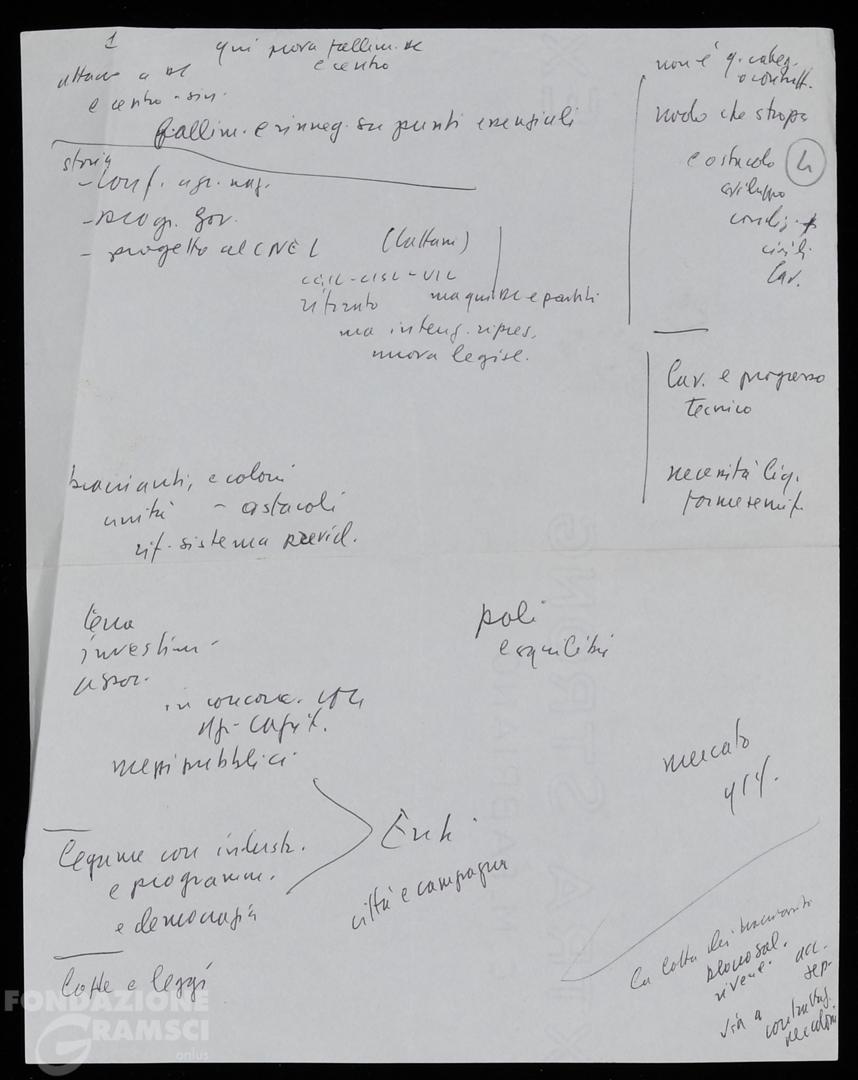 1
qui prova fallim. DC
e centro
attacco a DC
e centro-sin.
fallim. e rinneg. su punti essenziali
storia
- conf. agr. naz.
- progr. gov.
- progetto al CNEL (Cattani)
CGIL-CISL-UIL
ritirato ma qui DC e partiti
ma intens. ripres.
nuova legisl.
non è q. categ.
o contratt.
nodo che strozza
e ostacolo 4
sviluppo
condiz.
civili
lav.
lav. e progresso
tecnico
necessità liq.
forme
braccianti, e coloni
unità - ostacoli
rif. sistema previd.
terra
investim.
assoc.
in concorr.
capit.
mezzi pubblici
poli
e squilibri
mercato
legame con industr.
e programm.
e democrazia
Enti
città e campagna
lotte e leggi
la lotta dei braccianti
plurosal.
rivend.
via a
coloni
FONDAZIONE
GRAMSCI
onlus